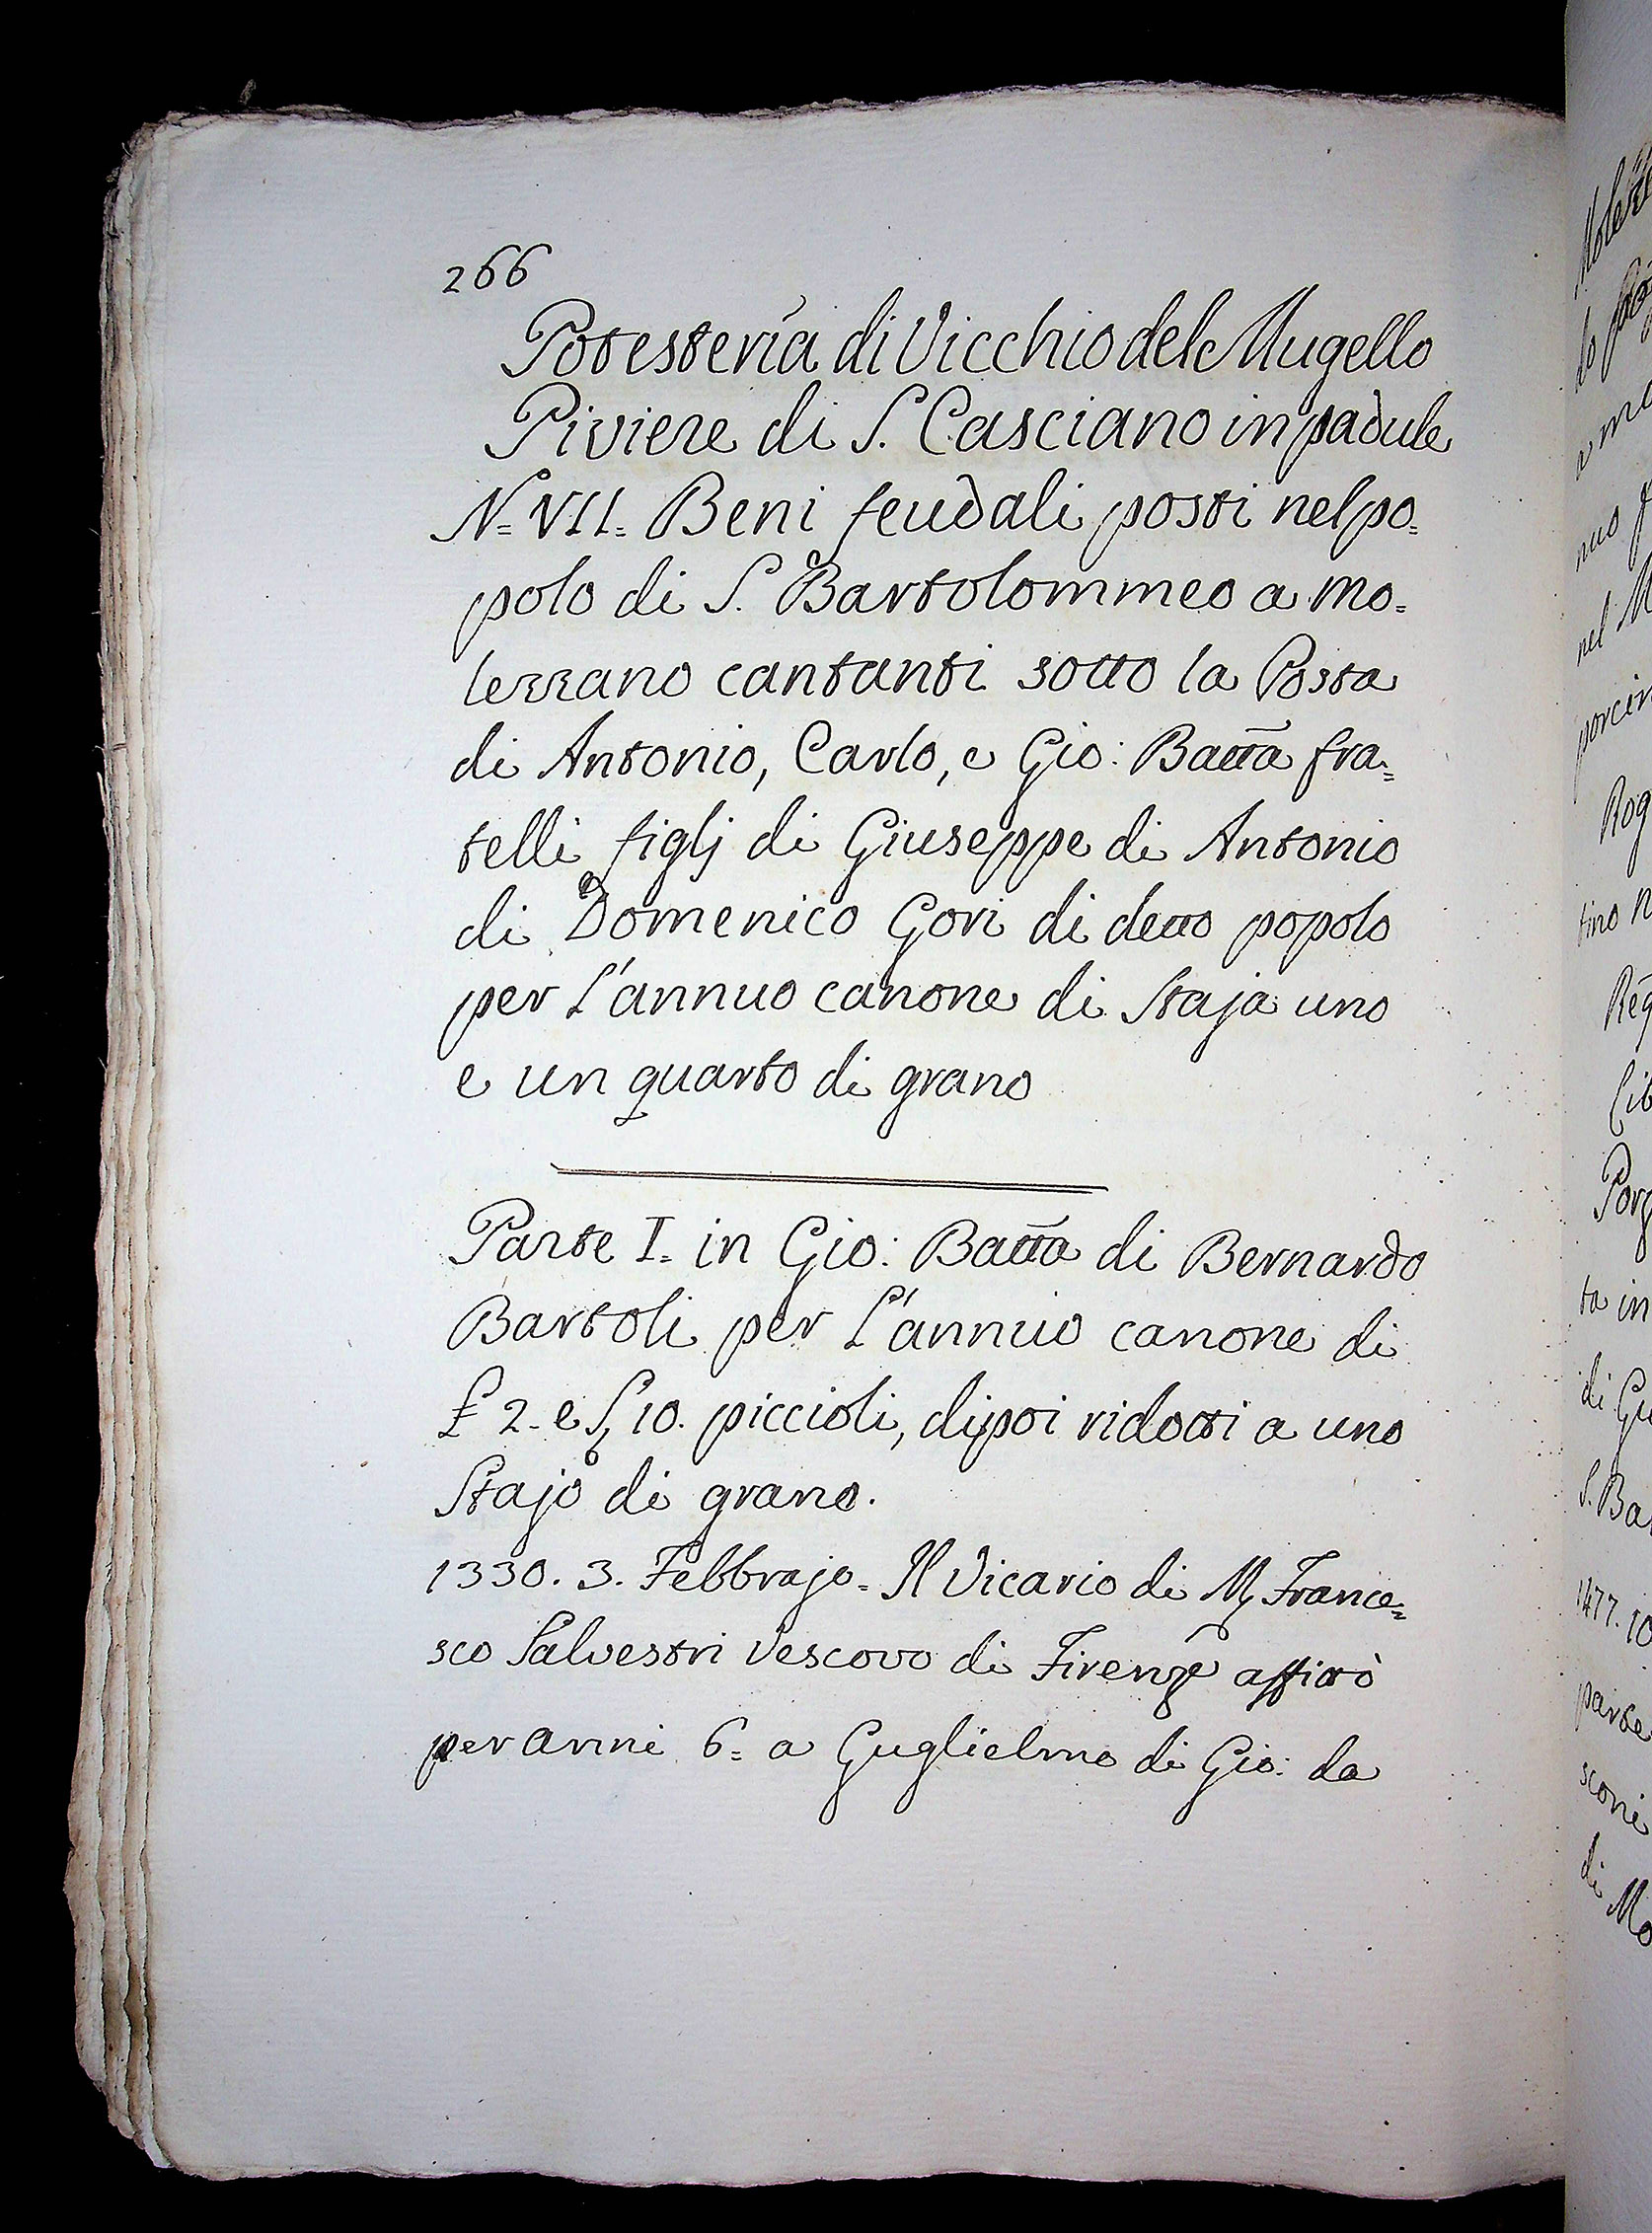 266
Potesteria di Vicchio del Mugello
Piviere di S. Casciano in padule
N. VII. Beni feudali posti nel po=
polo di S. Bartolommeo a Mo=
lezzano cantanti sotto la Posta
di Antonio, Carlo, e Gio: Batta fra=
telli figlj di Giuseppe di Antonio
di Domenico Gori di detto popolo
per L'annuo canone di Staja uno
e un quarto di grano
Parte I. in Gio: Batta di Bernardo
Bartoli per L'annuo canone di
£ 2. e S 10. piccioli, dipoi ridotti a uno
Stajo di grano.
1330. 3. Febbrajo. Il Vicario di M. France=
sco Salvestri Vescovo di Firenze affittò
per anni 6. a Guglielmo di Gio: da